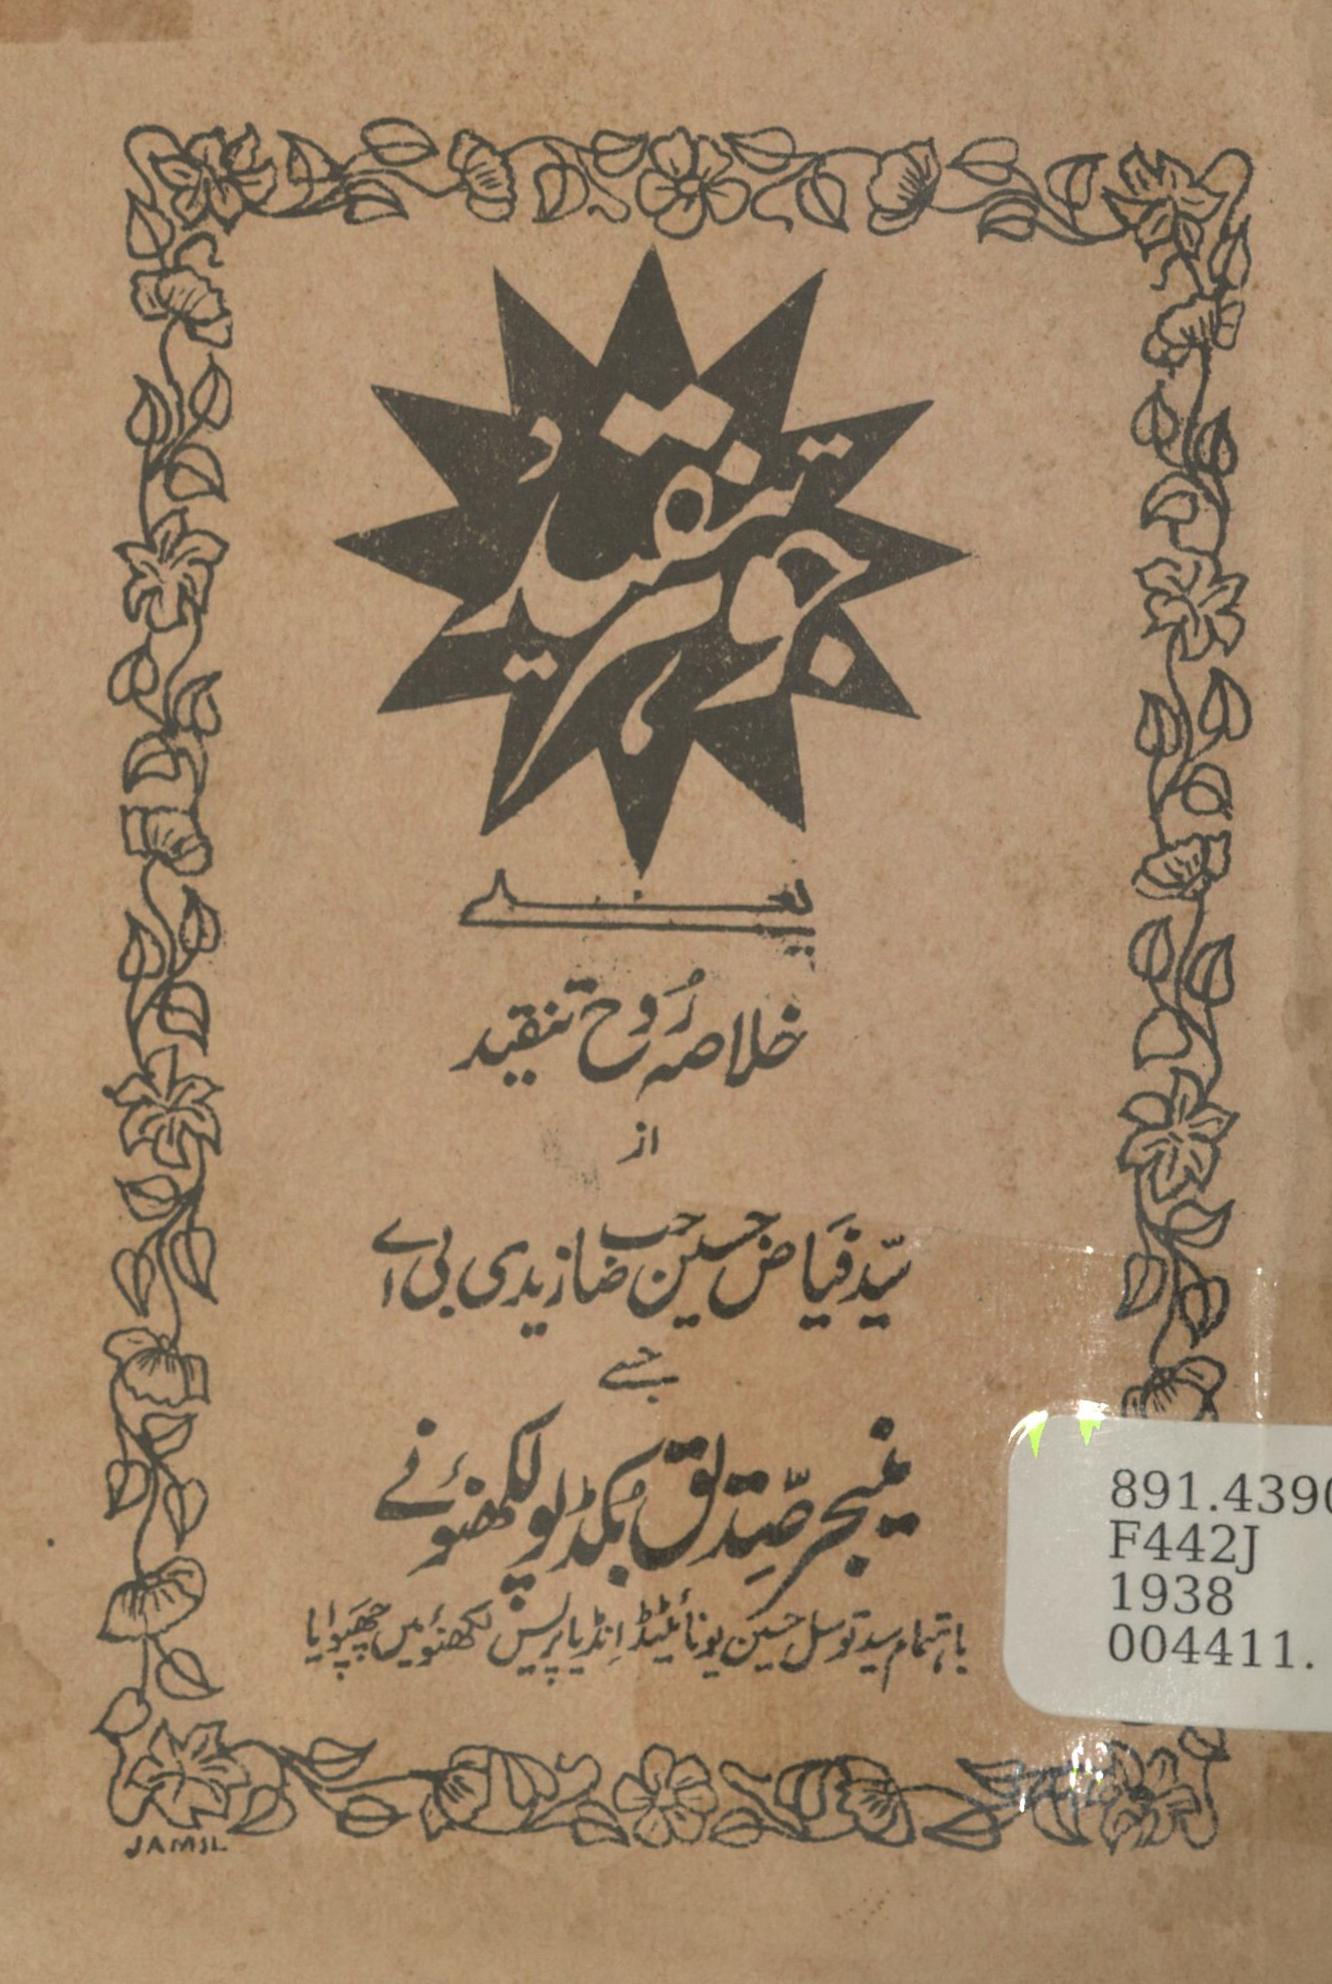 جوہر تنقید
یعنی
خلاصہ رُوح تنقید
از
سیّد فیاض حسین صاحب زیدی بی اے
جسے
منیجر صدیق بکڈپو لکھنؤ نے
باہتمام سید توسل حسین یونائیٹیڈ انڈیا پریس لکھنؤ میں چھپوایا
891.4390
F442J
1938
004411.
JAMIL